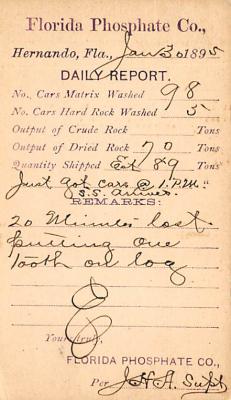 Florida Phosphate Co.,
Hernando, Fla., Jan 30 1895
DAILY REPORT.
No. Cars Matrix Washed 98
No. Cars Hard Rock Washed 5
Output of Crude Rock Tons
Output of Dried Rock 70 Tons
Quantity Shipped Est 89 Tons
Just got cars @ 1. P.M.
S.S.
REMARKS:
20 Minutes lost
putting one
tooth on log
Yours truly,
FLORIDA PHOSPHATE CO.,
Per J.H.A. Supt